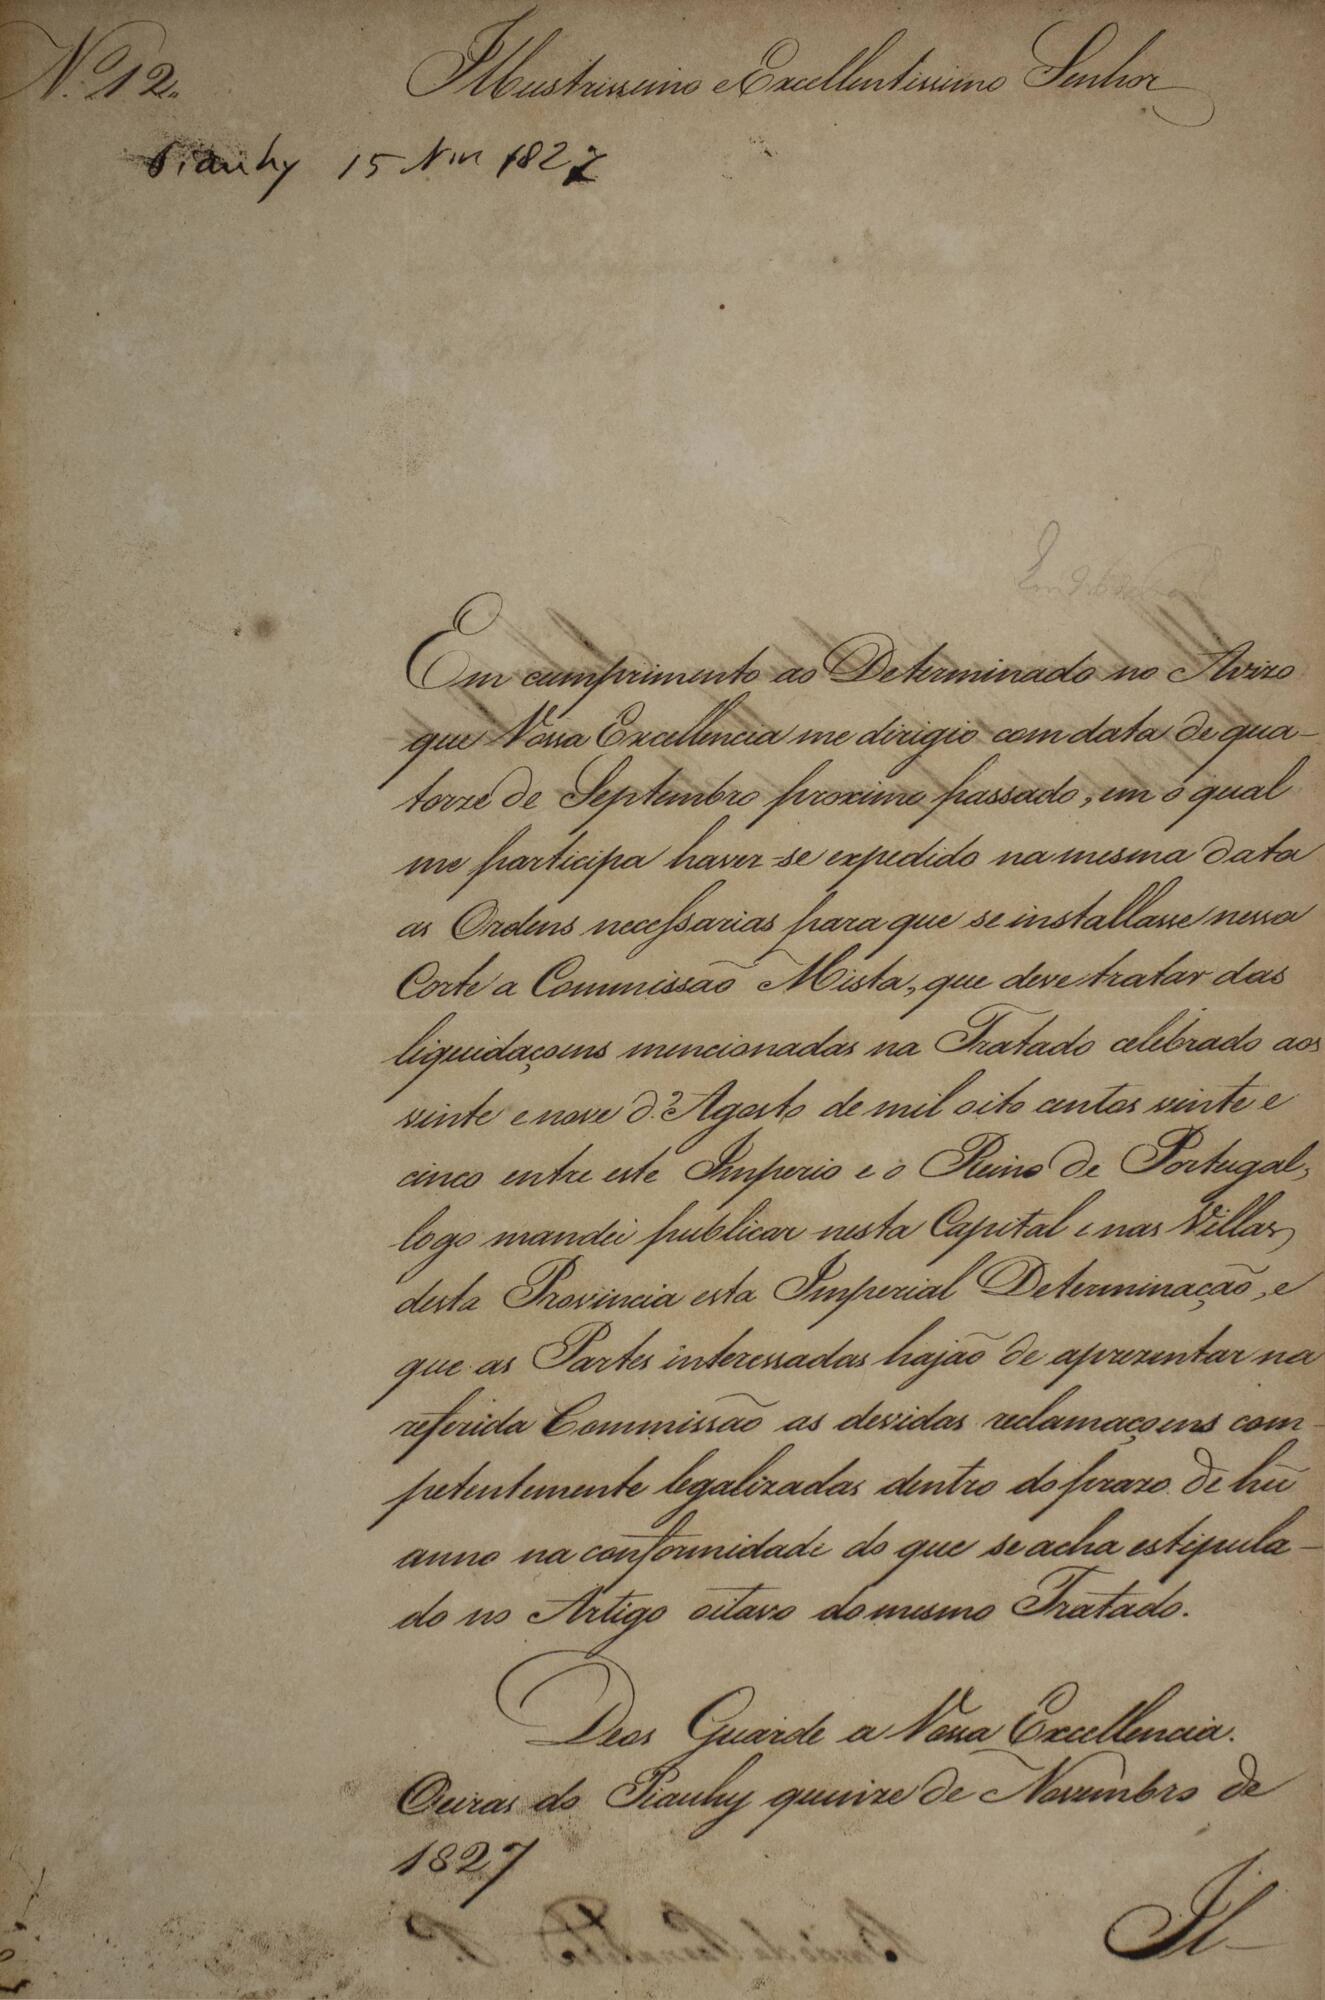 N.º 12.
Illustrissimo e Excellentissimo Senhor
Piauhy 15 Nov 1827
Em cumprimento ao Determinado no Avizo
que Vossa Excellencia me dirigio com data de qua-
torze de Septembro proximo passado, em o qual
me participa haver-se expedido na mesma data
as Ordens necessarias para que se installasse nessa
Corte a Commissão Mista, que deve tratar das
liquidaçoens mencionadas na Tratado celebrado aos
vinte e nove d.º Agosto de mil oito centos vinte e
cinco entre este Imperio e o Reino de Portugal,
logo mandei publicar nesta Capital e nas Villas
desta Provincia esta Imperial Determinação, e
que as Partes interessadas hajão de aprezentar na
referida Commissão as devidas reclamaçoens com-
petentemente legalizadas dentro do prazo de hũ
anno na conformidade do que se acha estipula-
do no Artigo oitavo do mesmo Tratado.
Deos Guarde a Vossa Excellencia.
Oeiras do Piauhy quinze de Novembro de
1827
Il-